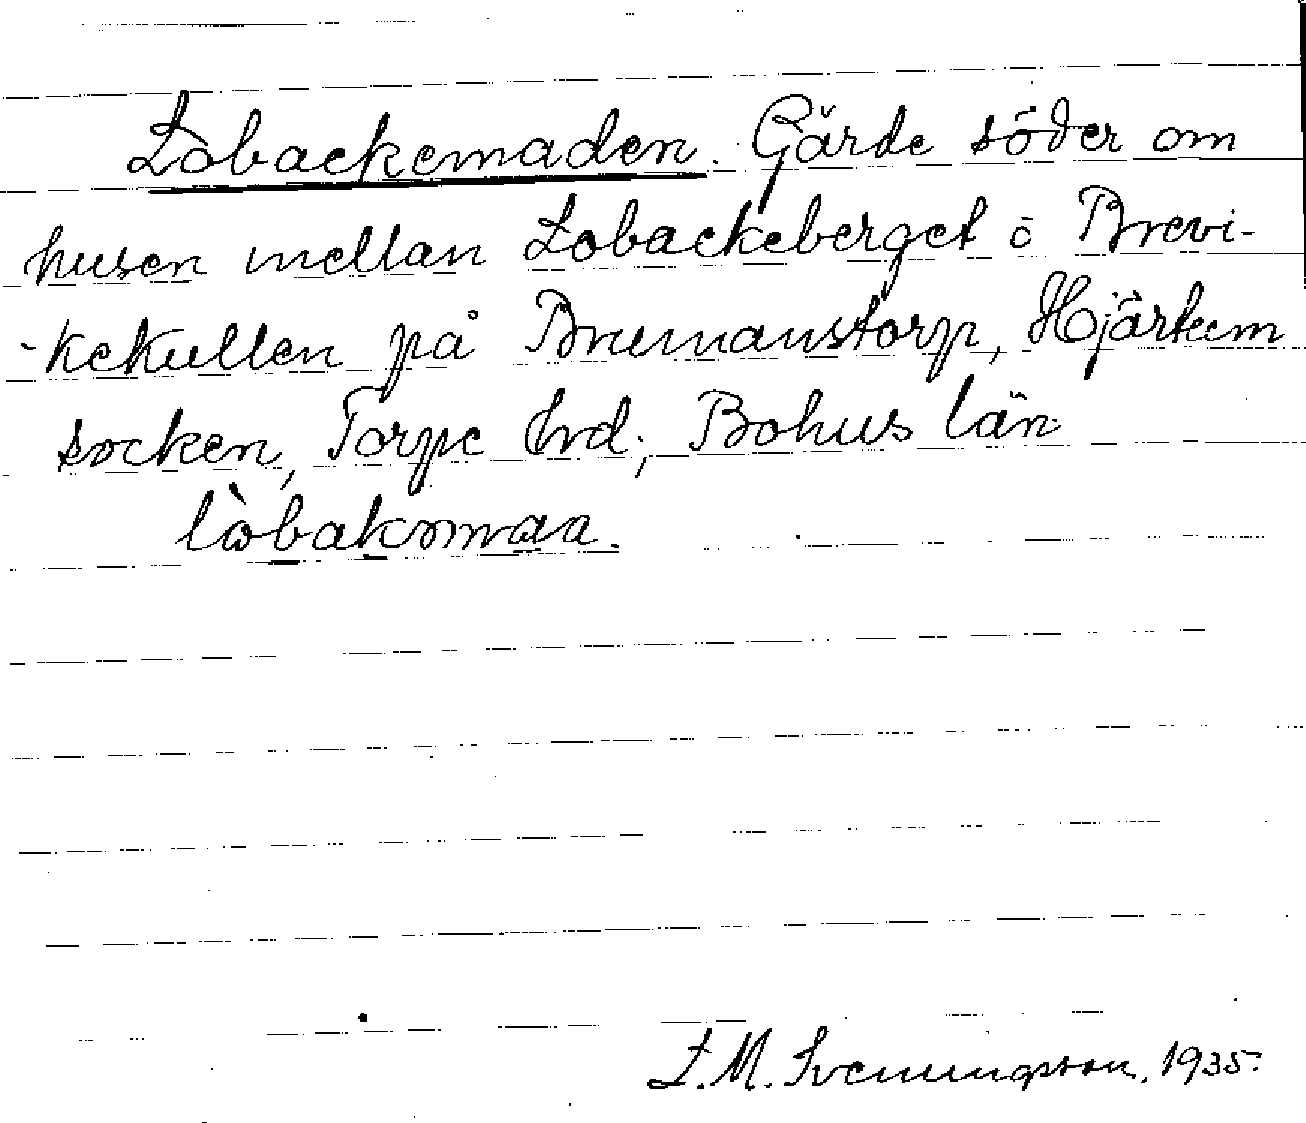 Lobackemaden. Gärde söder om
husen mellan Lobackeberget o Brevi-
-kekullen på Brumanstorp, Hjärtum
socken, Torpe hrd; Bohus län
lòbakəmaa.
L. M. Svenungsson. 1935.